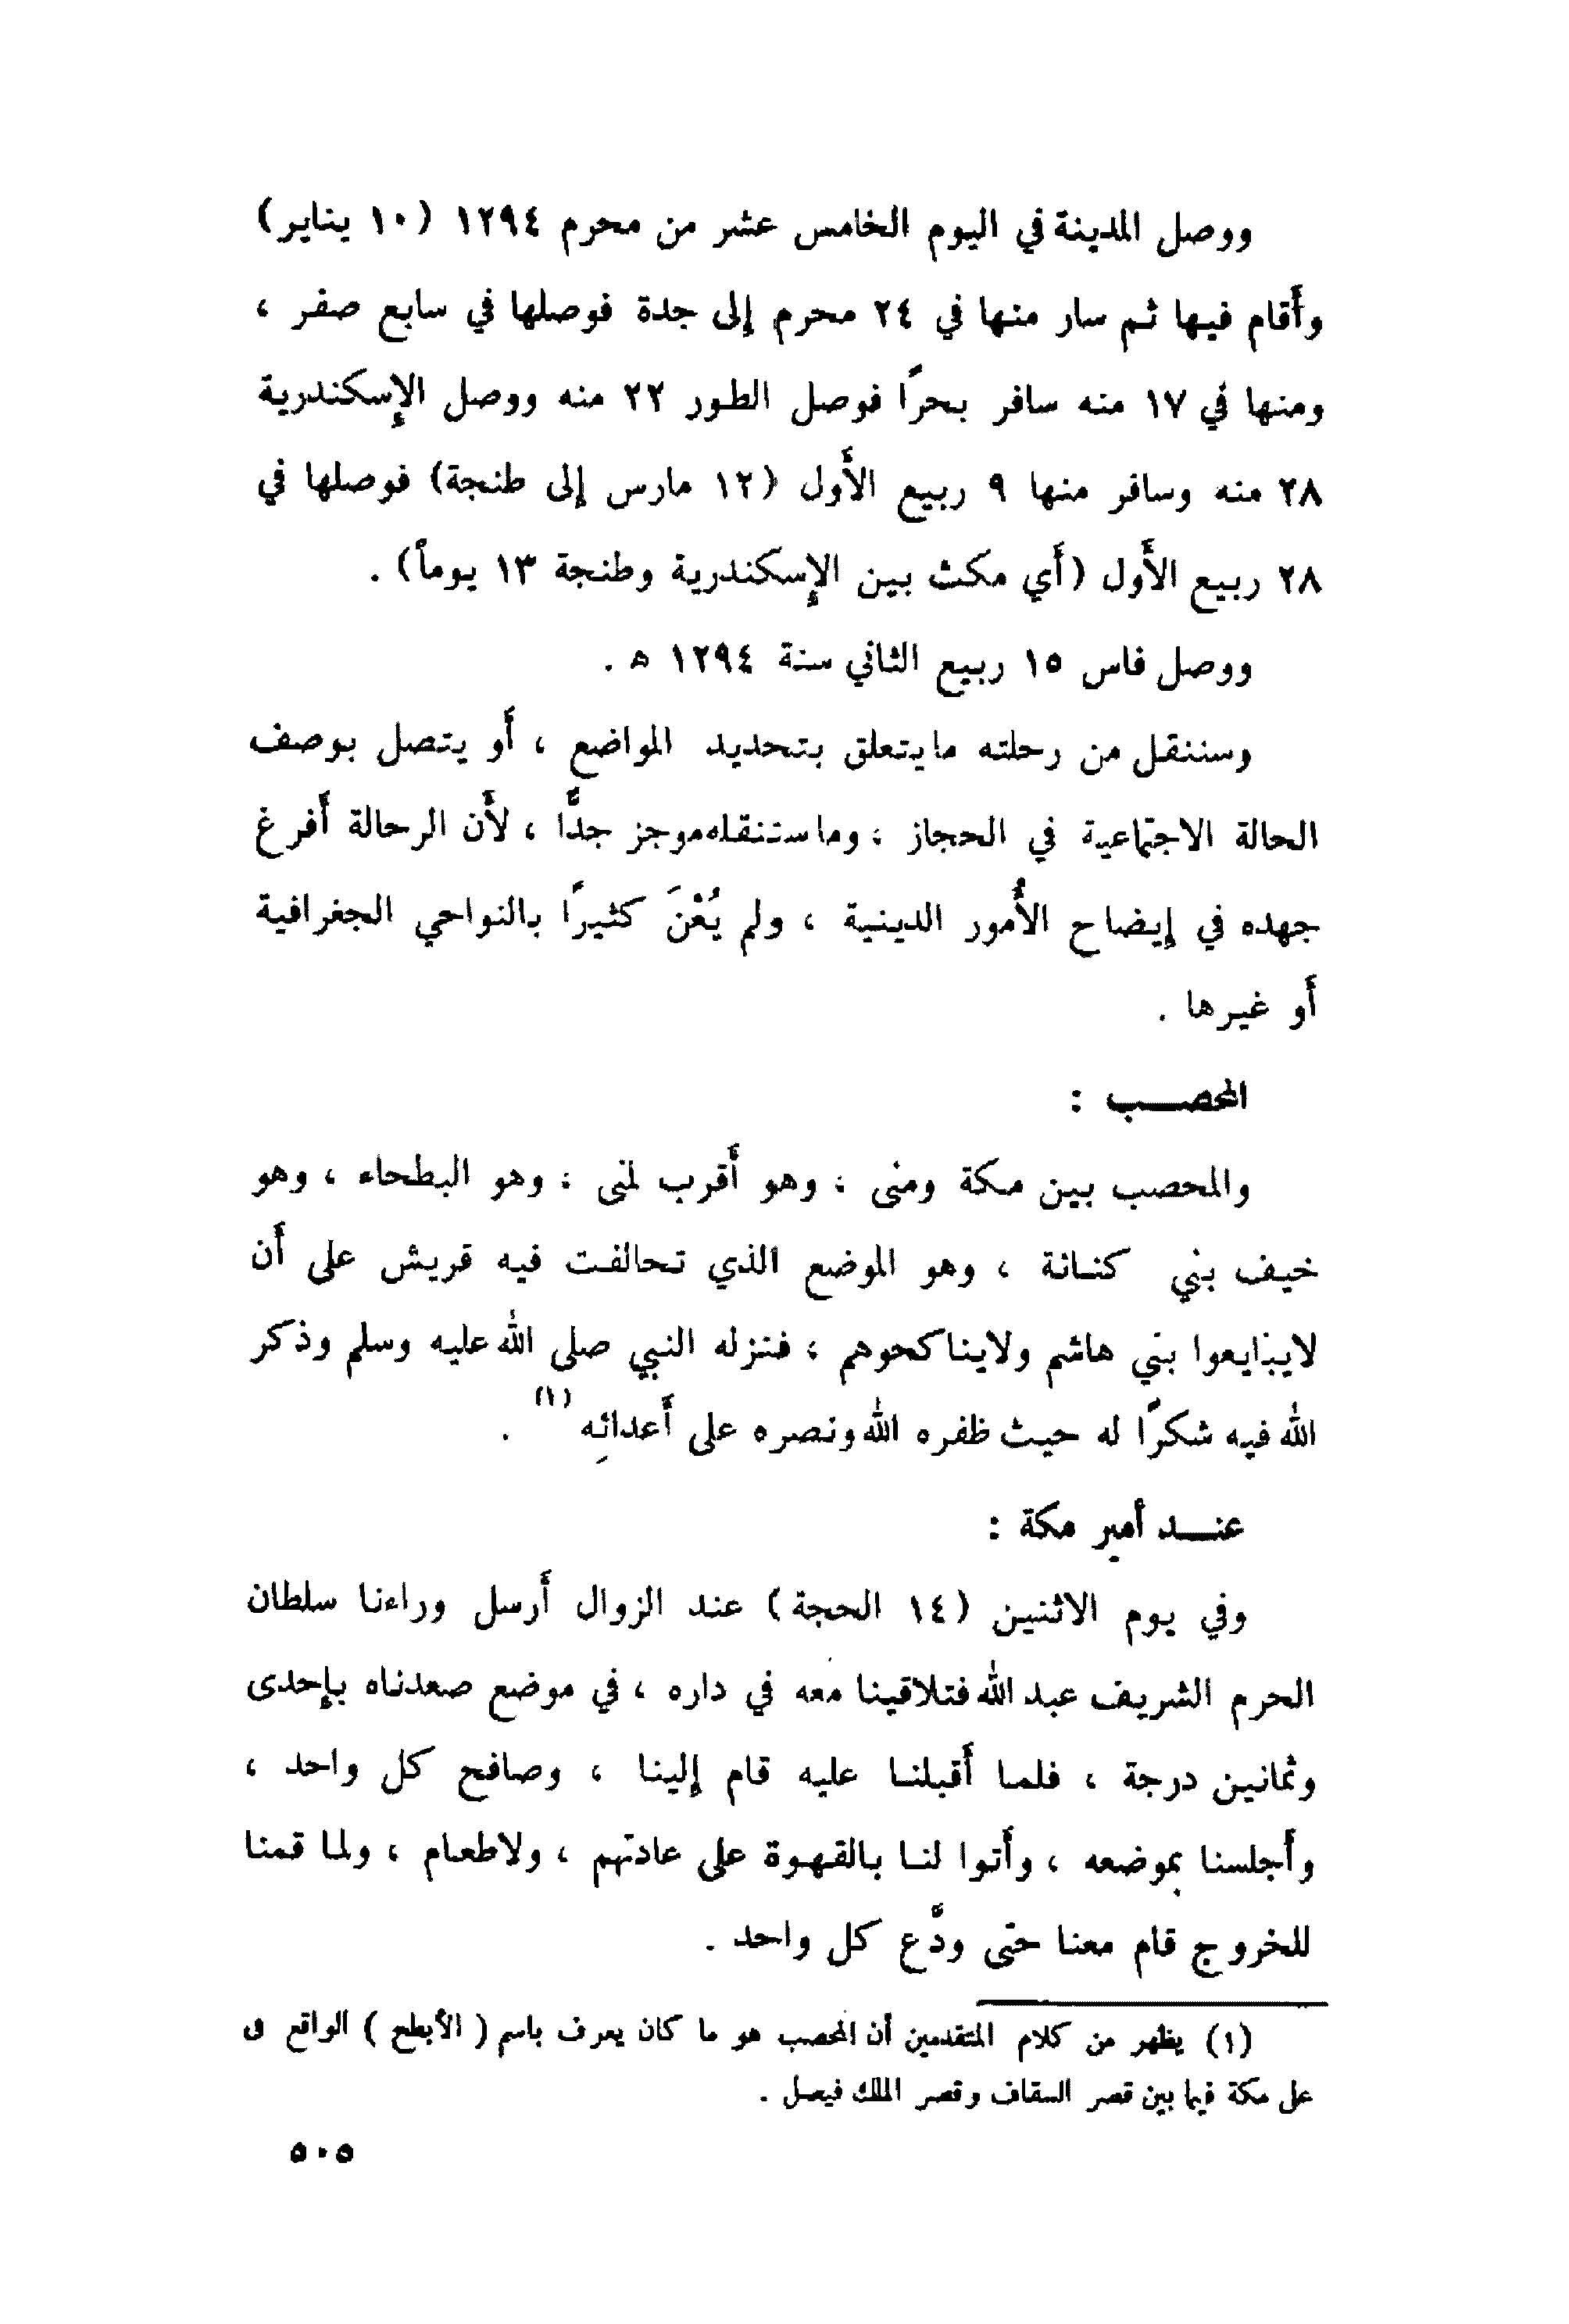 ووصل المدينة في اليوم الخامس عشر من محرم ١٢٩٤ (١٠ يناير)
وأَقام فيها ثم سار منها في ٢٤ محرم إلى جدة فوصلها في سابع صفر ،
ومنها في ١٧ منه سافر بحرًا فوصل الطور ٢٢ منه ووصل الإسكندرية
٢٨ منه وسافر منها ٩ ربيع الأَول (١٢ مارس إلى طنجة) فوصلها في
٢٨ ربيع الأَول (أَي مكث بين الإسكندرية وطنجة ١٣ يوماً) .
ووصل فاس ١٥ ربيع الثاني سنة ١٢٩٤ ه .
وسننقل من رحلته مايتعلق بتحديد المواضع ، أَو يتصل بوصف
الحالة الاجتماعية في الحجاز ، وماسننقله موجز جدًّا ، لأَن الرحالة أَفرغ
جهده في إيضاح الأُمور الدينية ، ولم يُعْنَ كثيرًا بالنواحي الجغرافية
أَو غيرها .
المحصـــب :
والمحصب بين مكة ومنى ، وهو أَقرب لمنى ، وهو البطحاء ، وهو
خيف بني كنـانة ، وهو الموضع الذي تحالفت فيه قريش على أَن
لايبايعوا بني هاشم ولايناكحوهم ، فنزله النبي صلى الله عليه وسلم وذكر
الله فيه شكرًا له حيث ظفره الله ونصره على أَعدائِه (١) .
عنـــد أمير مكة :
وفي يوم الاثنين (١٤ الحجة) عند الزوال أَرسل وراءنا سلطان
الحرم الشريف عبد الله فتلاقينا معه في داره ، في موضع صعدناه بإحدى
وثمانين درجة ، فلمـا أَقبلنـا عليه قام إلينا ، وصافح كل واحد ،
وأَجلسنا بموضعه ، وأَتوا لنـا بالقهوة على عادتهم ، ولاطعـام ، ولما قمنا
للخروج قام معنا حتى ودَّع كل واحد .
(١) يظهر من كلام المتقدمين أن المحصب هو ما كان يعرف باسم ( الأبطح ) الواقع فى
على مكة فيما بين قصر السقاف وقصر الملك فيصل .
٥٠٥